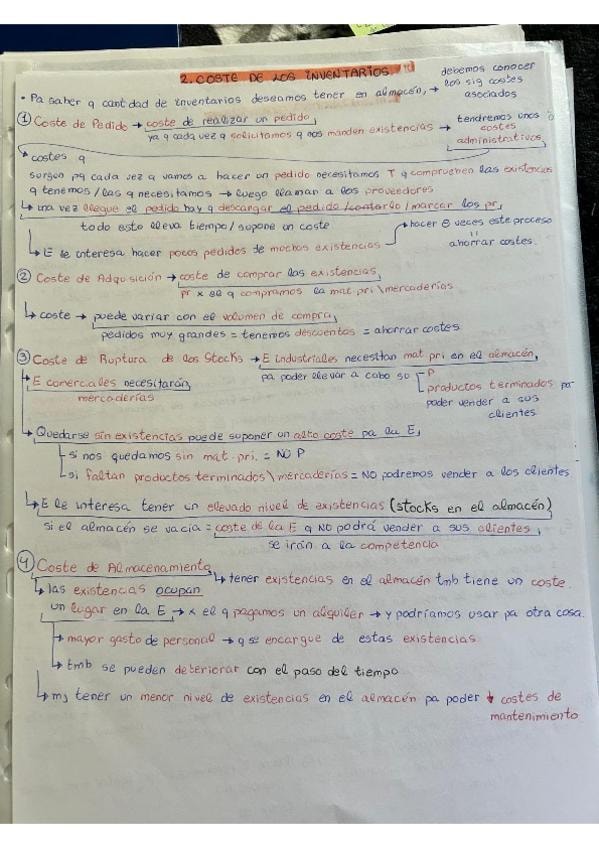 2. COSTE DE LOS INVENTARIOS
• Pa saber q cantidad de inventarios deseamos tener en almacén, → debemos conocer los sig costes asociados
① Coste de Pedido → coste de realizar un pedido,
ya q cada vez q solicitamos q nos manden existencias → tendremos unos costes administrativos,
↳ costes q
surgen pq cada vez q vamos a hacer un pedido necesitamos T q comprueben las existencias
q tenemos/las q necesitamos → luego llaman a los proveedores
↳ una vez llegue el pedido hay q descargar el pedido/contarlo/marcar los pr,
todo esto lleva tiempo/supone un coste
↳ E le interesa hacer pocos pedidos de muchas existencias → hacer ⊖ veces este proceso
=
ahorrar costes.
② Coste de Adquisición → coste de comprar las existencias,
pr x el q compramos la mat.pri\mercaderías
↳ coste → puede variar con el volumen de compra,
pedidos muy grandes = tenemos descuentos = ahorrar costes
③ Coste de Ruptura de los Stocks → E industriales necesitan mat pri en el almacén,
pa poder llevar a cabo su P
productos terminados pa poder vender a sus clientes
→ E comerciales necesitarán,
mercaderías
↳ Quedarse sin existencias puede suponer un alto coste pa la E,
si nos quedamos sin mat.pri. = NO P
si faltan productos terminados\mercaderías = NO podremos vender a los clientes
↳ E le interesa tener un elevado nivel de existencias (stocks en el almacén)
si el almacén se vacía = coste de la E q NO podrá vender a sus clientes,
se irán a la competencia
④ Coste de Almacenamiento
↳ tener existencias en el almacén tmb tiene un coste.
↳ las existencias ocupan
un lugar en la E → x el q pagamos un alquiler → y podríamos usar pa otra cosa.
→ mayor gasto de personal → q se encargue de estas existencias
↳ tmb se pueden deteriorar con el paso del tiempo
↳ mj tener un menor nivel de existencias en el almacén pa poder ↓ costes de
mantenimiento